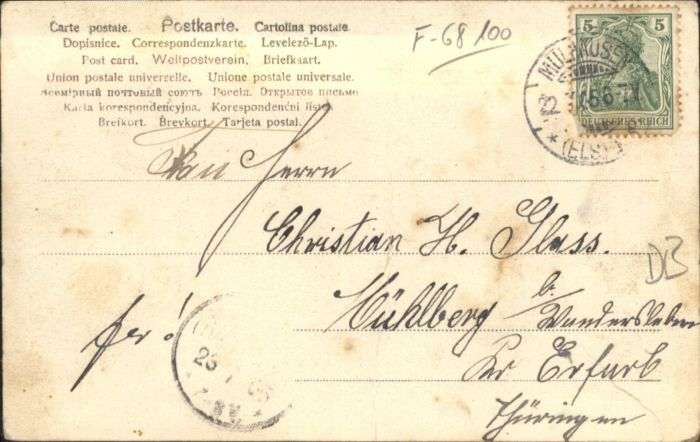 Carte postale. Postkarte. Cartolina postale.
Dopisnice. Correspondenzkarte. Levelező-Lap.
Post card. Weltpostverein. Briefkaart.
Union postale universelle. Unione postale universale.
Всемірный почтовый союзъ Россія. Открытое письмо
Karta korespondencyjna. Korespondenční lístek
Brefkort. Brevkort. Tarjeta postal.
F-68 /00
5 5
DEUTSCHES REICH
MÜLHAUSEN
(ELS.)
Herrn
Christian H. Glass.
Mühlberg b/ Wandersleben
Kr Erfurt
Thüringen
DB
25